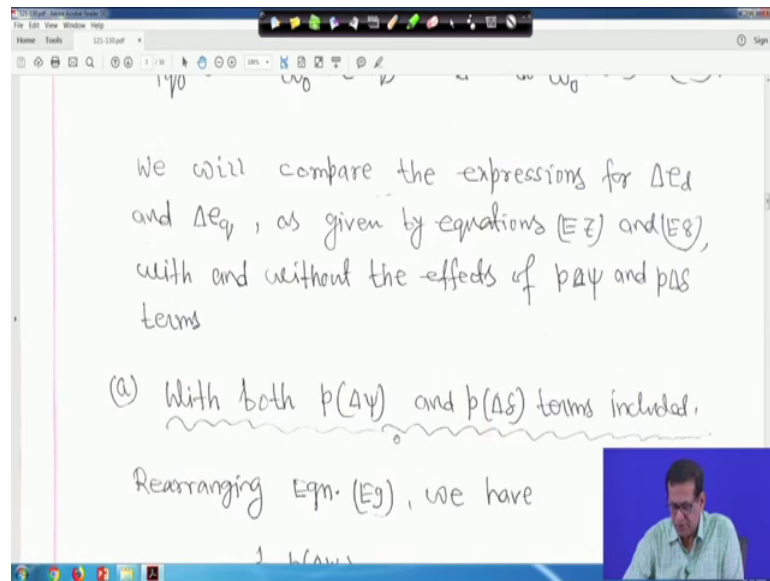 121-130.pdf - Adobe Acrobat Reader DC
File Edit View Window Help
Home Tools 121-130.pdf Sign
We will compare the expressions for Δed
and Δeq, as given by equations (E7) and (E8),
with and without the effects of pΔψ and pΔδ
terms
(a) With both p(Δψ) and p(Δδ) terms included.
Rearranging Eqn. (E9), we have